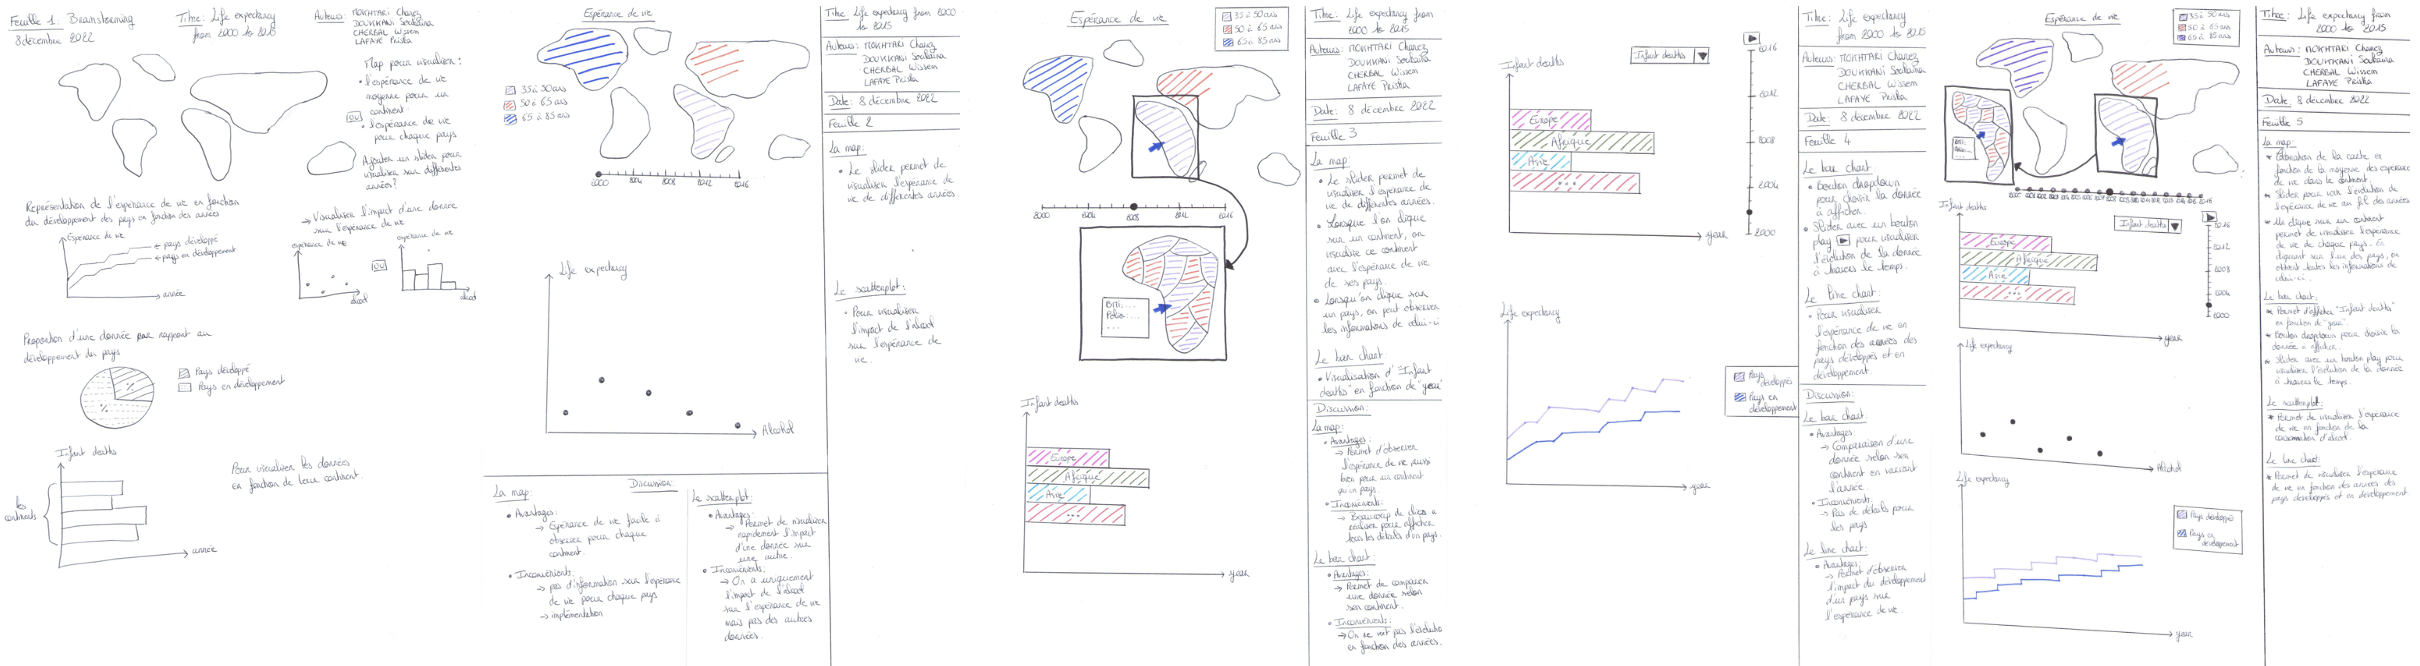 Feuille 1: Brainstorming
8 décembre 2022
Titre: Life expectancy
from 2000 to 2015
Auteurs: MOKHTARI Chanez
DOUKKANI Soulaïna
CHERBAL Wissem
LAFAYE Priska
Map pour visualiser:
• l'espérance de vie
moyenne pour un
continent
OU
• l'espérance de vie
pour chaque pays
Ajouter un slider pour
visualiser sur différentes
années?
Représentation de l'espérance de vie en fonction
du développement des pays en fonction des années
Espérance de vie
pays développé
pays en développement
année
→ Visualiser l'impact d'une donnée
sur l'espérance de vie
espérance de vie
alcool
OU
espérance de vie
alcool
Proportion d'une donnée par rapport au
développement du pays
%
%
Pays développé
Pays en développement
Infant deaths
les
continents
année
Pour visualiser les données
en fonction de leur continent.
Espérance de vie
35 à 50 ans
50 à 65 ans
65 à 85 ans
2000 2004 2008 2012 2016
Life expectancy
Alcohol
Discussion:
La map:
• Avantages:
→ Espérance de vie facile à
observer pour chaque
continent.
• Inconvénients:
→ pas d'information sur l'espérance
de vie pour chaque pays
→ implémentation
Le scatterplot:
• Avantages:
→ Permet de visualiser
rapidement l'impact
d'une donnée sur
une autre.
• Inconvénients:
→ On a uniquement
l'impact de l'alcool
sur l'espérance de vie
mais pas des autres
données.
Titre: Life expectancy from 2000
to 2015
Auteurs: MOKHTARI Chanez
DOUKKANI Soulaïna
CHERBAL Wissem
LAFAYE Priska
Date: 8 décembre 2022
Feuille 2
La map:
• Le slider permet de
visualiser l'espérance de
vie de différentes années.
Le scatterplot:
• Pour visualiser
l'impact de l'alcool
sur l'espérance de
vie.
Espérance de vie
35 à 50 ans
50 à 65 ans
65 à 85 ans
2000 2004 2008 2016
Polio: ...
...
Infant deaths
Europe
Afrique
Asie
...
year
Titre: Life expectancy from
2000 to 2015
Auteurs: MOKHTARI Chanez
DOUKKANI Soulaïna
CHERBAL Wissem
LAFAYE Priska
Date: 8 décembre 2022
Feuille 3
La map:
• Le slider permet de
visualiser l'espérance de
vie de différentes années.
• Lorsque l'on clique
sur un continent, on
visualise ce continent
avec l'espérance de vie
de ses pays.
• Lorsqu'on clique sur
un pays, on peut observer
les informations de celui-ci
Le bar chart:
• Visualisation d'"Infant
deaths" en fonction de "year"
Discussion:
La map:
• Avantages:
→ Permet d'observer
l'espérance de vie aussi
bien pour un continent
qu'un pays.
• Inconvénients:
→ Beaucoup de clics à
réaliser pour afficher
tous les détails d'un pays.
Le bar chart:
• Avantages:
→ Permet de comparer
une donnée selon
son continent.
• Inconvénients:
→ On ne voit pas l'évolution
en fonction des années.
Infant deaths
Infant deaths
Europe
Afrique
Asie
...
year
2016
2012
2008
2004
2000
Life expectancy
Pays
développés
Pays en
développement
year
Titre: Life expectancy
from 2000 to 2015
Auteurs: MOKHTARI Chanez
DOUKKANI Soulaïna
CHERBAL Wissem
LAFAYE Priska
Date: 8 décembre 2022
Feuille 4
Le bar chart:
• Bouton dropdown
pour choisir la donnée
à afficher.
• Slider avec un bouton
play pour visualiser
l'évolution de la donnée
à travers le temps.
Le line chart:
• Pour visualiser
l'espérance de vie en
fonction des années des
pays développés et en
développement.
Discussion:
Le bar chart:
• Avantages:
→ Comparaison d'une
donnée selon son
continent en variant
l'année.
• Inconvénients:
→ Pas de détails pour
les pays
Le line chart:
• Avantages:
→ Permet d'observer
l'impact du développement
d'un pays sur
l'espérance de vie.
Espérance de vie
35 à 50 ans
50 à 65 ans
65 à 85 ans
Infant deaths
Infant deaths
Europe
Afrique
Asie
...
year
2016
2012
2008
2004
2000
Life expectancy
Alcohol
Life expectancy
Pays développé
Pays en
développement
year
Titre: Life expectancy from
2000 to 2015
Auteurs: MOKHTARI Chanez
DOUKKANI Soulaïna
CHERBAL Wissem
LAFAYE Priska
Date: 8 décembre 2022
Feuille 5
La map:
* Coloration de la carte en
fonction de la moyenne des espérances
de vie dans le continent.
* Slider pour voir l'évolution de
l'espérance de vie au fil des années
* Un clique sur un continent
permet de visualiser l'espérance
de vie de chaque pays. En
cliquant sur l'un des pays, on
obtient toutes les informations de
celui-ci.
Le bar chart:
* Permet d'afficher "Infant deaths"
en fonction de "year".
* Bouton dropdown pour choisir la
donnée à afficher.
* Slider avec un bouton play pour
visualiser l'évolution de la donnée
à travers le temps.
Le scatterplot:
* Permet de visualiser l'espérance
de vie en fonction de la
consommation d'alcool.
Le line chart:
* Permet de visualiser l'espérance
de vie en fonction des années des
pays développés et en développement.